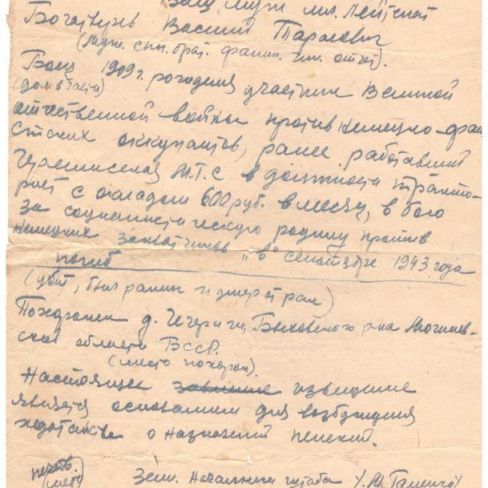 Ваш муж мл. лейтенант
Богатырев Василий Тарасович
(должн. спи. фамил. им. отч.).
1909 г. рождения участник Великой
(должность)
отечественной войны против немецко-фаши
стских оккупантов, ранее работавший
М.Т.С в должности тракто-
рист с окладом 600 руб. в месяц, в бою
за социалистическую родину против
немецких захватчиков „ " сентября 1943 года
погиб
(убит, был ранен и умер от ран)
Похоронен д. Быховского р-на Могилев-
ской области БССР.
(место похорон).
Настоящее извещение
является основанием для возбуждения
ходатайства о назначении пенсии.
Зам. Начальника штаба